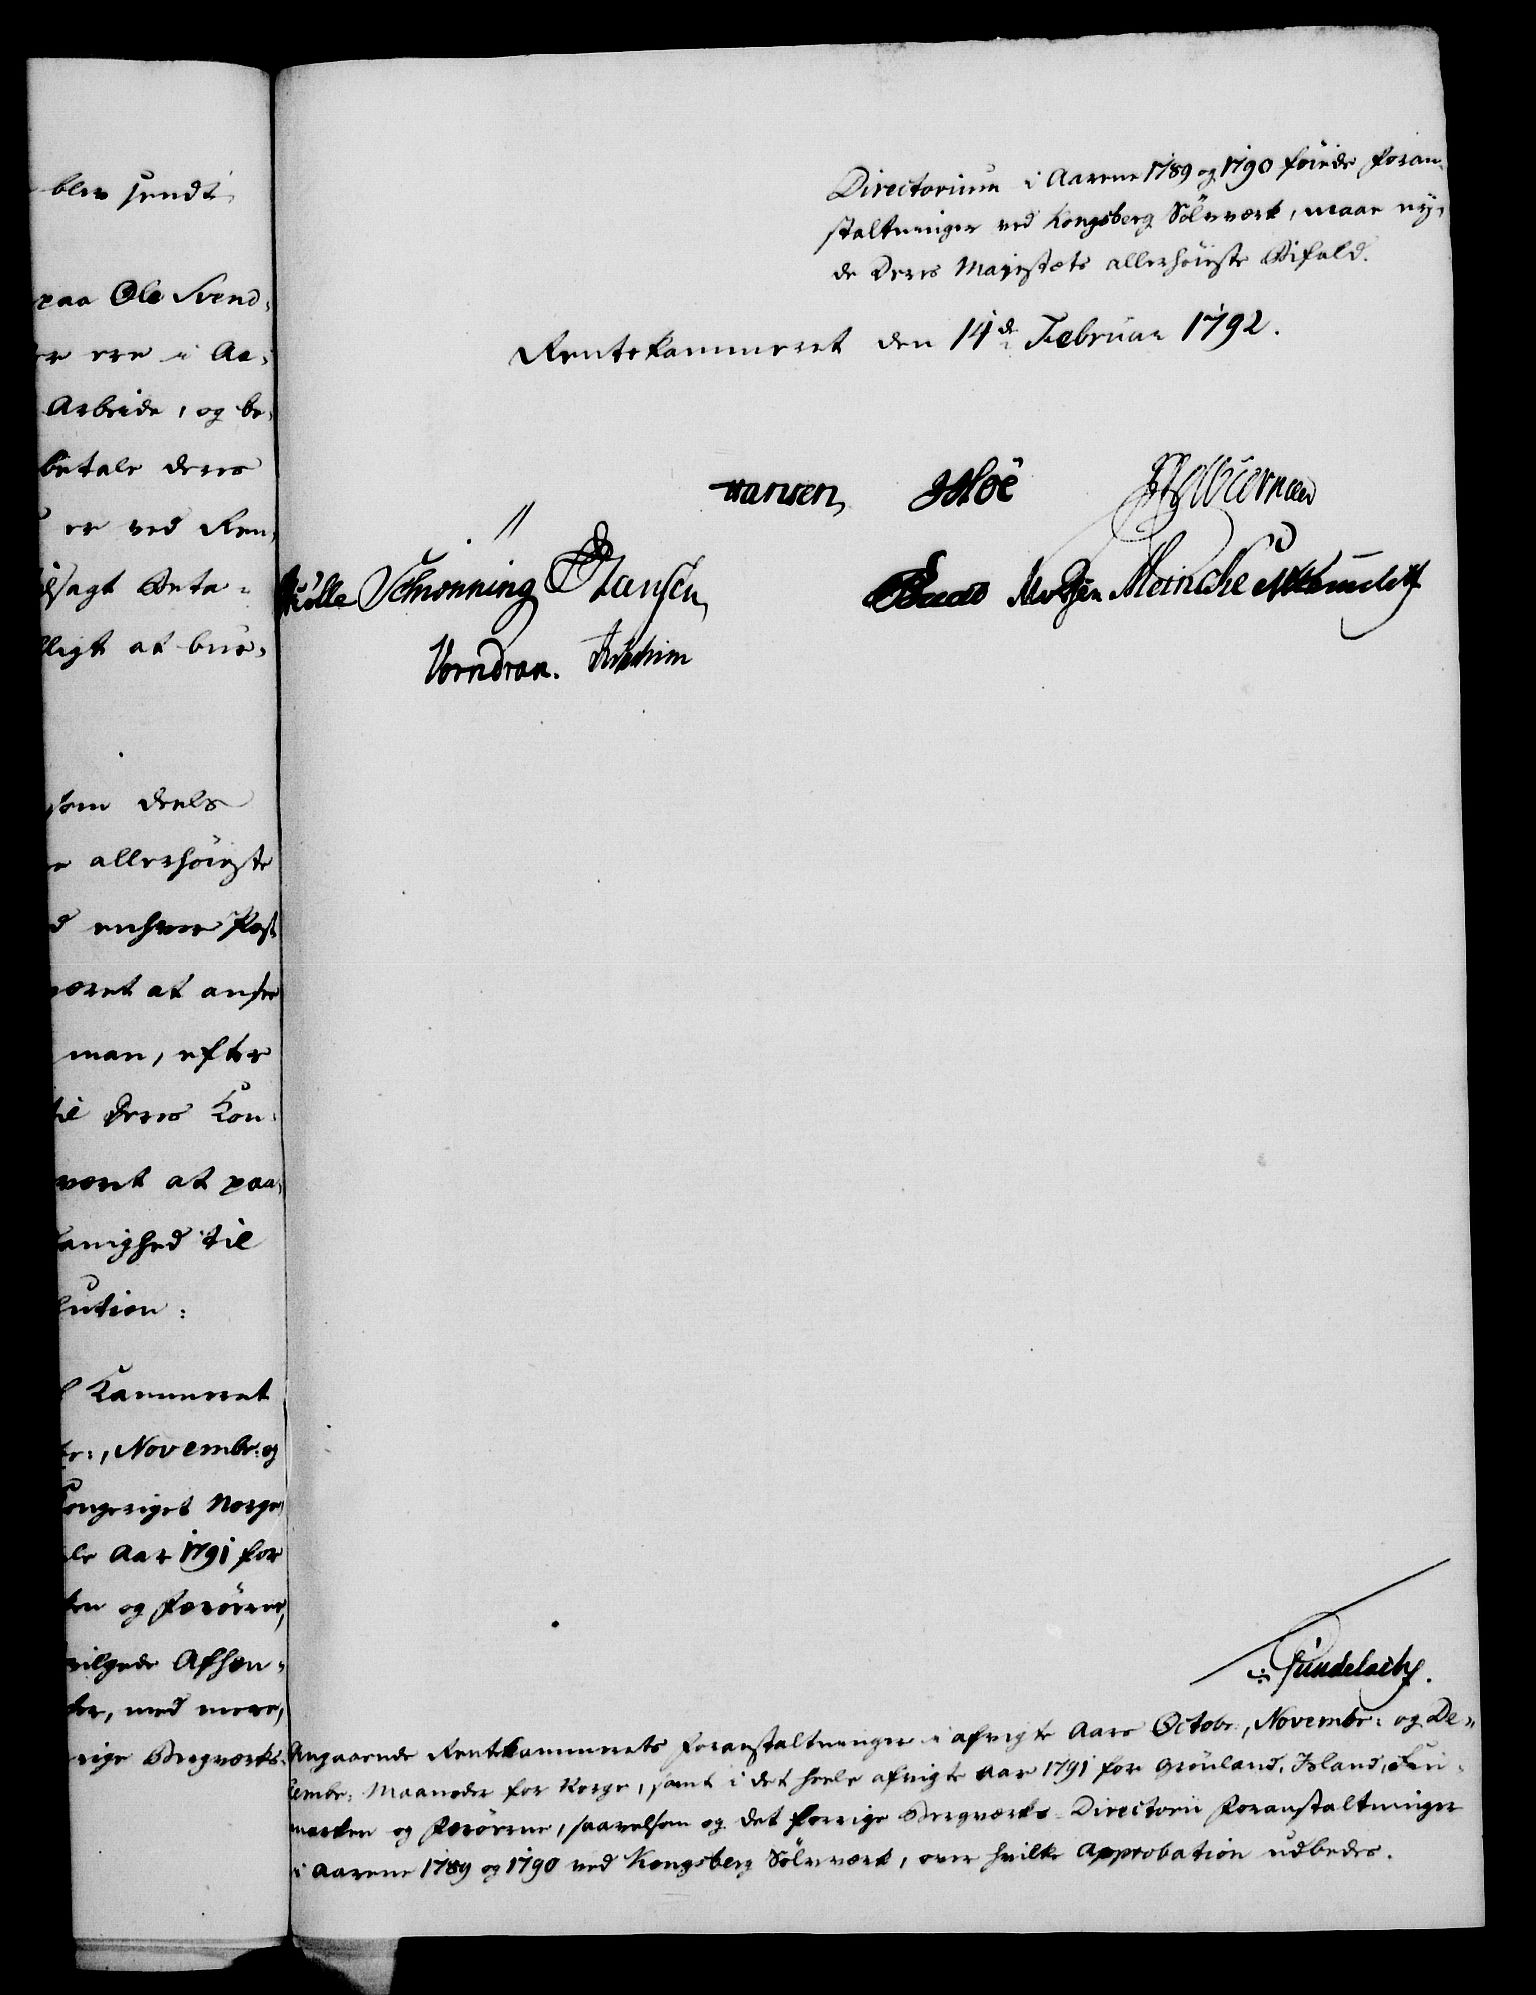 blev sendt
paa Ole Svend-
er ere i Aa-
Arbeide, og be-
betale deres
er ved Ren-
dsagt Beta-
lligt at bru-
som deels
allerhöieste
enhver Post
været at ansee
man, efter
til Deres Kon-
været at paa-
danighed til
lution:
Kammeret
br:, Novembr: og
Kongeriget Norge
le Aar 1791 for
ken og Færöerne,
Afsen-
ter, med mere,
rige Bergværks-
Directorium i Aarene 1789 og 1790 föiede Foran-
staltninger ved Kongsberg Sölvværk, maae ny-
de Deres Majestæts allerhöieste Bifald.
Rentekammeret den 14de Februar 1792.
Hansen, JMöe
Schionning Hansen,
Meinche
Vorndran.
Gundelach.
Angaaende Rentekammerets Foranstaltninger i afvigte Aars Octobr:, Novembr: og De-
cembr: Maaneder for Norge, samt i det heele afvigte Aar 1791 for Grönland, Island, Fin-
marken og Færöerne, saavelsom og det forrige Bergværks-Directorii Foranstaltninger
i Aarene 1789 og 1790 ved Kongsberg Sölvværk, over hvilke Approbation udbedes.